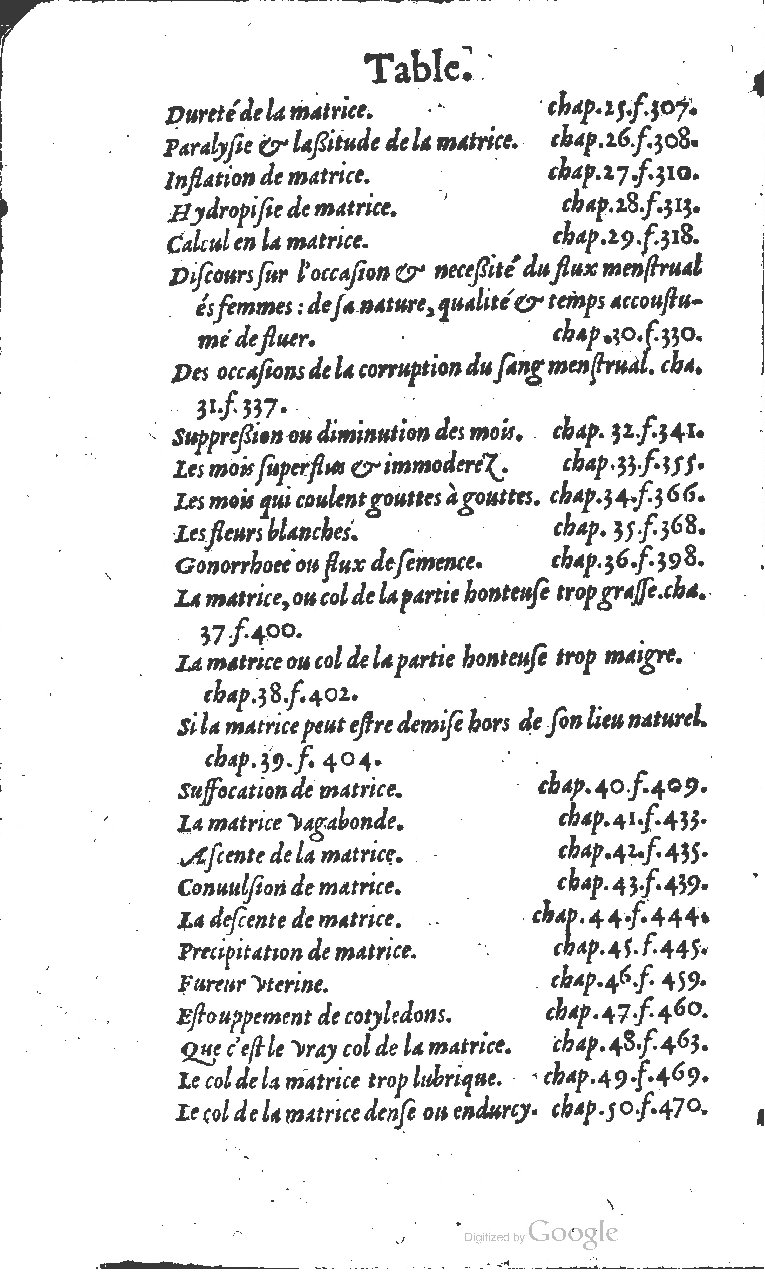 Table.
Dureté de la matrice. chap.25.f.307.
Paralyſie & laßitude de la matrice. chap.26.f.308.
Inflation de matrice. chap.27.f.310.
Hydropiſie de matrice. chap.28.f.313.
Calcul en la matrice. chap.29.f.318.
Diſcours ſur l'occaſion & neceßité du flux menſtrual
és femmes : de ſa nature, qualité & temps accouſtu-
mé de fluer. chap.30.f.330.
Des occaſions de la corruption du ſang menſtrual. cha.
31.f.337.
Suppreßion ou diminution des mois. chap. 32.f.341.
Les mois ſuperflus & immoderez. chap.33.f.355.
Les mois qui coulent gouttes à gouttes. chap.34.f.366.
Les fleurs blanches. chap. 35.f.368.
Gonorrhoee ou flux de ſemence. chap.36.f.398.
La matrice, ou col de la partie honteuſe trop graſſe.cha.
37.f.400.
La matrice ou col de la partie honteuſe trop maigre.
chap.38.f.402.
Si la matrice peut eſtre demiſe hors de ſon lieu naturel.
chap.39.f. 404.
Suffocation de matrice. chap.40.f.409.
La matrice vagabonde. chap.41.f.433.
Aſcente de la matrice. chap.42.f.435.
Conuulſion de matrice. chap.43.f.439.
La deſcente de matrice. chap.44.f.444.
Precipitation de matrice. chap.45.f.445.
Fureur vterine. chap.46.f. 459.
Eſtouppement de cotyledons. chap.47.f.460.
Que c'eſt le vray col de la matrice. chap.48.f.463.
Le col de la matrice trop lubrique. chap.49.f.469.
Le col de la matrice denſe ou endurcy. chap.50.f.470.
Digitized by Google